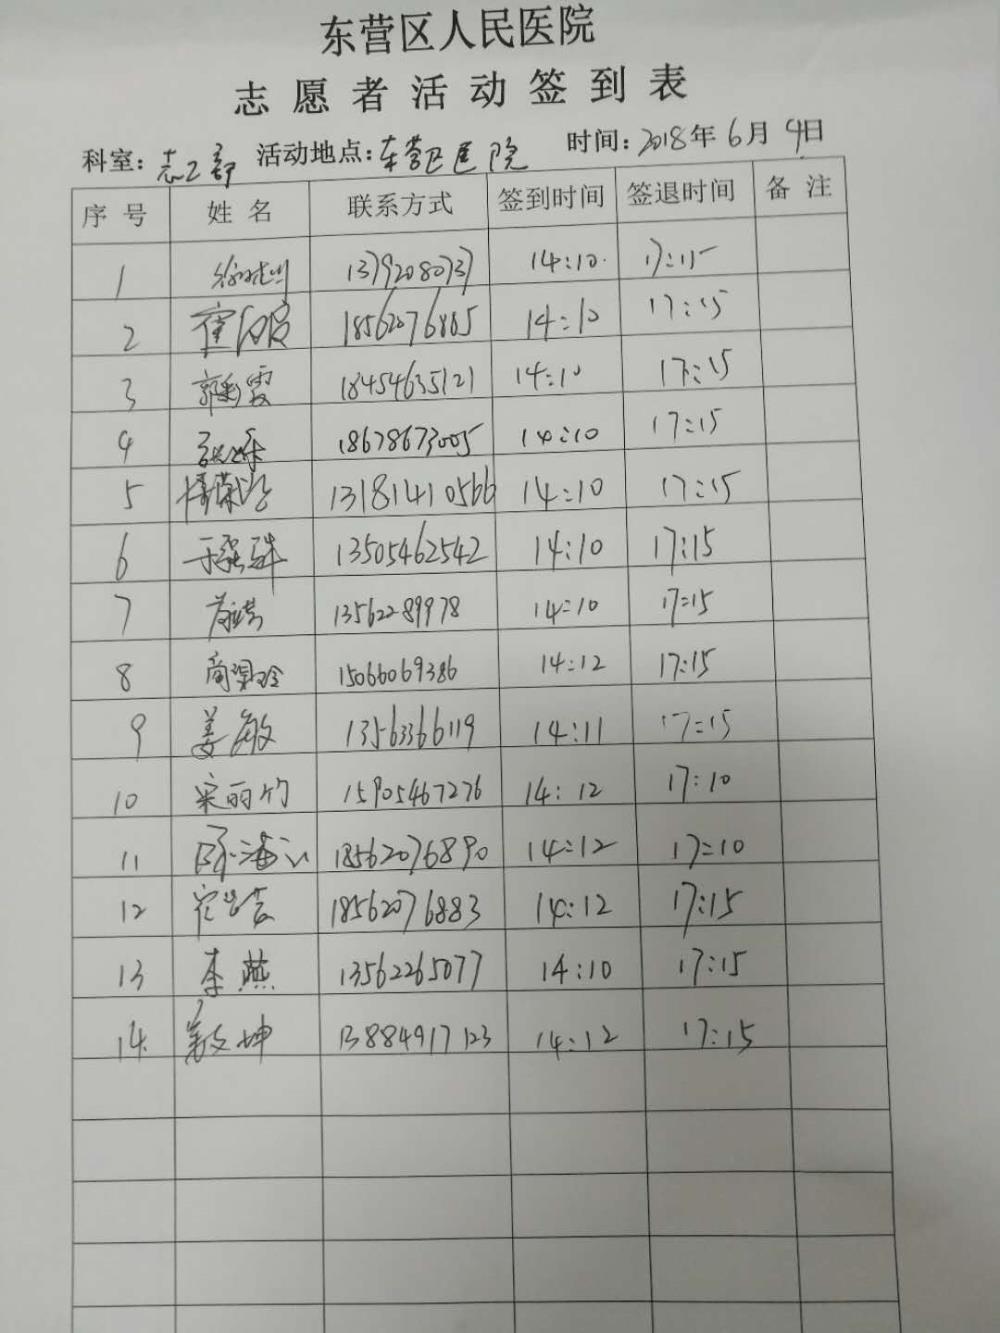 东营区人民医院
志愿者活动签到表
科室:志工部 活动地点:东营区医院 时间:2018年6月9日
序号 姓名 联系方式 签到时间 签退时间 备注
1 13792080737 14:10 17:15
2 18562076865 14:10 17:15
3 郭彩霞 18454635121 14:10 17:15
4 18678673005 14:10 17:15
5 13181410566 14:10 17:15
6 13505462542 14:10 17:15
7 13562289978 14:10 17:15
8 15066069386 14:12 17:15
9 姜敏 13563366119 14:11 17:15
10 宋丽竹 15905467276 14:12 17:10
11 18562076890 14:12 17:10
12 18562076883 14:12 17:15
13 李燕 13562265077 14:10 17:15
14 13884917123 14:12 17:15